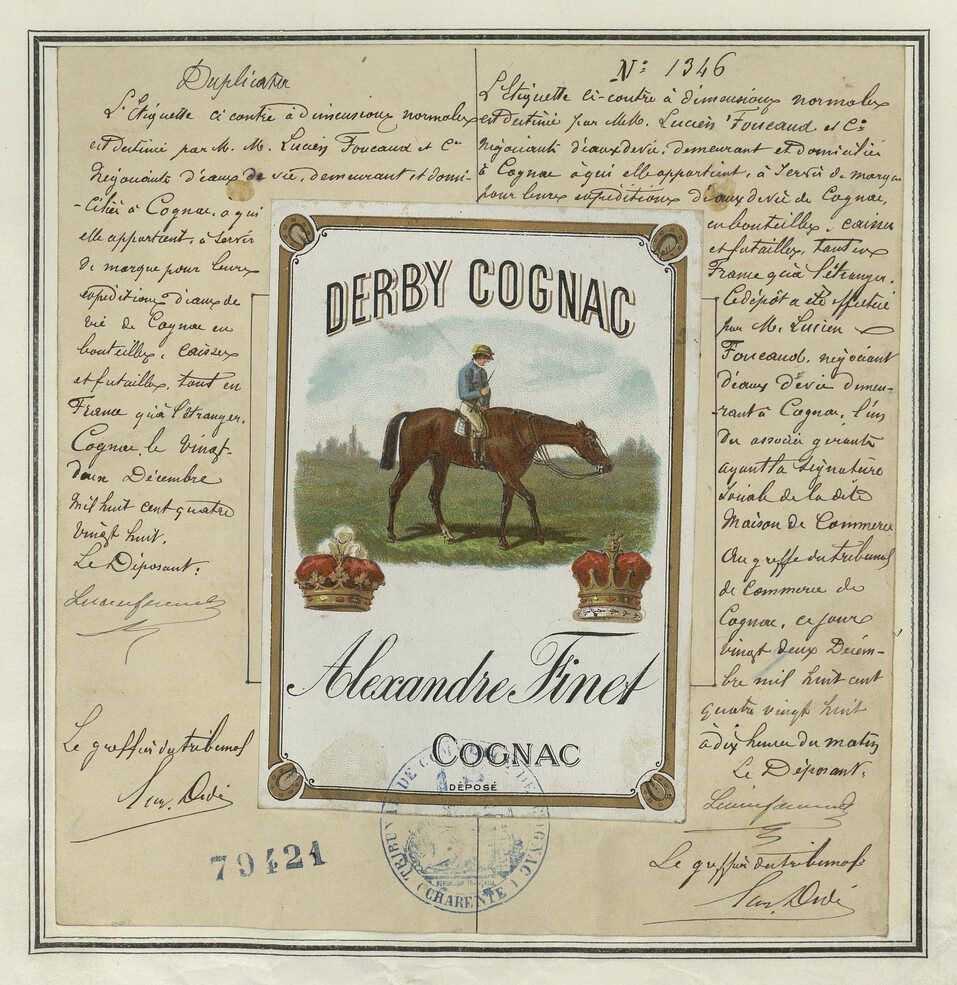 Duplicata
L'Etiquette ci contre à dimensions normales
est destiné par M. M. Lucien Foucaud et Cie
Négociants d'eaux de vie, demeurant et domi-
-ciliés à Cognac, a qui
elle appartient, à servir
de marque pour leurs
expéditions d'eaux de
vie de Cognac en
bouteilles, caisses
et futailles, tant en
France qu'à l'étranger.
Cognac le vingt
deux Décembre
mil huit cent quatre
vingt huit.
Le Déposant:
Le greffier du tribunal
79421
N° 1346
L'Etiquette ci-contre à dimensions normales
est destiné par M.M. Lucien Foucaud et Cie
Négociants d'eaux de vie, demeurant et domiciliés
à Cognac à qui elle appartient, à servir de marque
pour leurs expéditions d'eaux de vie de Cognac,
en bouteilles, caisses
et futailles, tant en
France qu'à l'étranger.
Ce dépôt a été effectué
par M. Lucien
Foucaud, négociant
d'eaux de vie demeu-
-rant à Cognac, l'un
des associés gérants
ayant la signature
sociale de la dite
Maison de Commerce
Au greffe du tribunal
de Commerce de
Cognac, ce jour
vingt deux Décem-
bre mil huit cent
quatre vingt huit
à dix heures du matin
Le Déposant.
Le greffier du tribunal
DERBY COGNAC
Alexandre Finet
COGNAC
DÉPOSÉ
TRIBUNAL DE COMMERCE DE COGNAC
(CHARENTE)